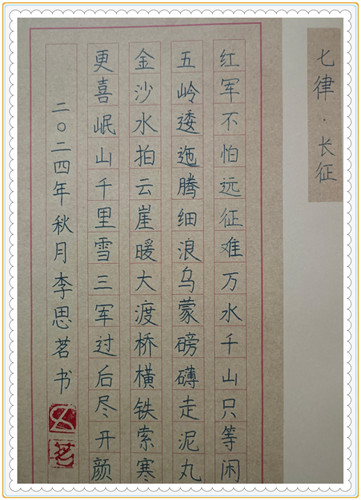 七律·长征
红军不怕远征难万水千山只等闲
五岭逶迤腾细浪乌蒙磅礴走泥丸
金沙水拍云崖暖大渡桥横铁索寒
更喜岷山千里雪三军过后尽开颜
二〇二四年秋月李思茗书
茗